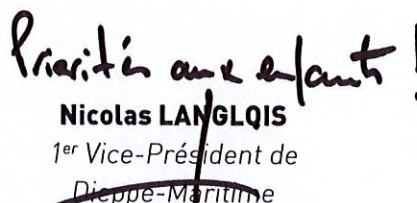 Priorités aux enfants !
Nicolas LANGLOIS
1er Vice-Président de
Dieppe-Maritime